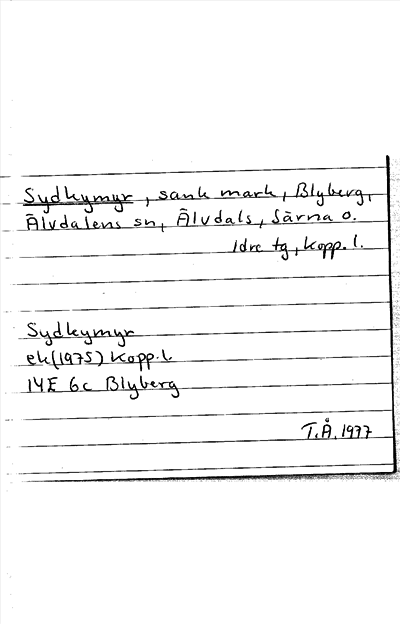 Sydkymyr, sank mark, Blyberg,
Älvdalens sn, Älvdals, Särna o.
Idre tg, Kopp. l.
Sydkymyr
ek (1975) Kopp. l.
14E 6c Blyberg
T.Å. 1977